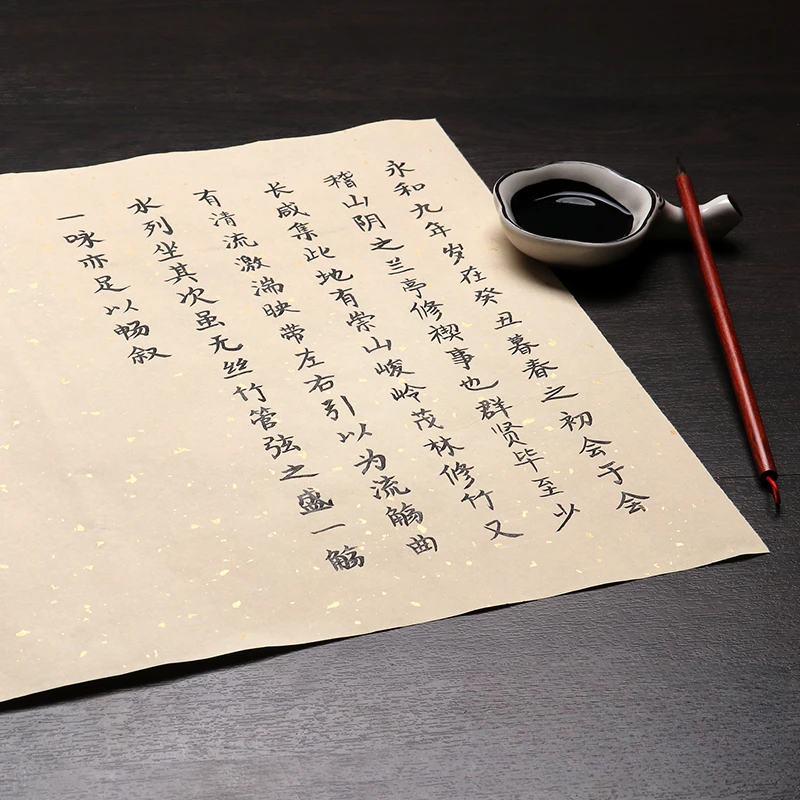 永和九年岁在癸丑暮春之初会于会
稽山阴之兰亭修禊事也群贤毕至少
长咸集此地有崇山峻岭茂林修竹又
有清流激湍映带左右引以为流觞曲
水列坐其次虽无丝竹管弦之盛一觞
一咏亦足以畅叙